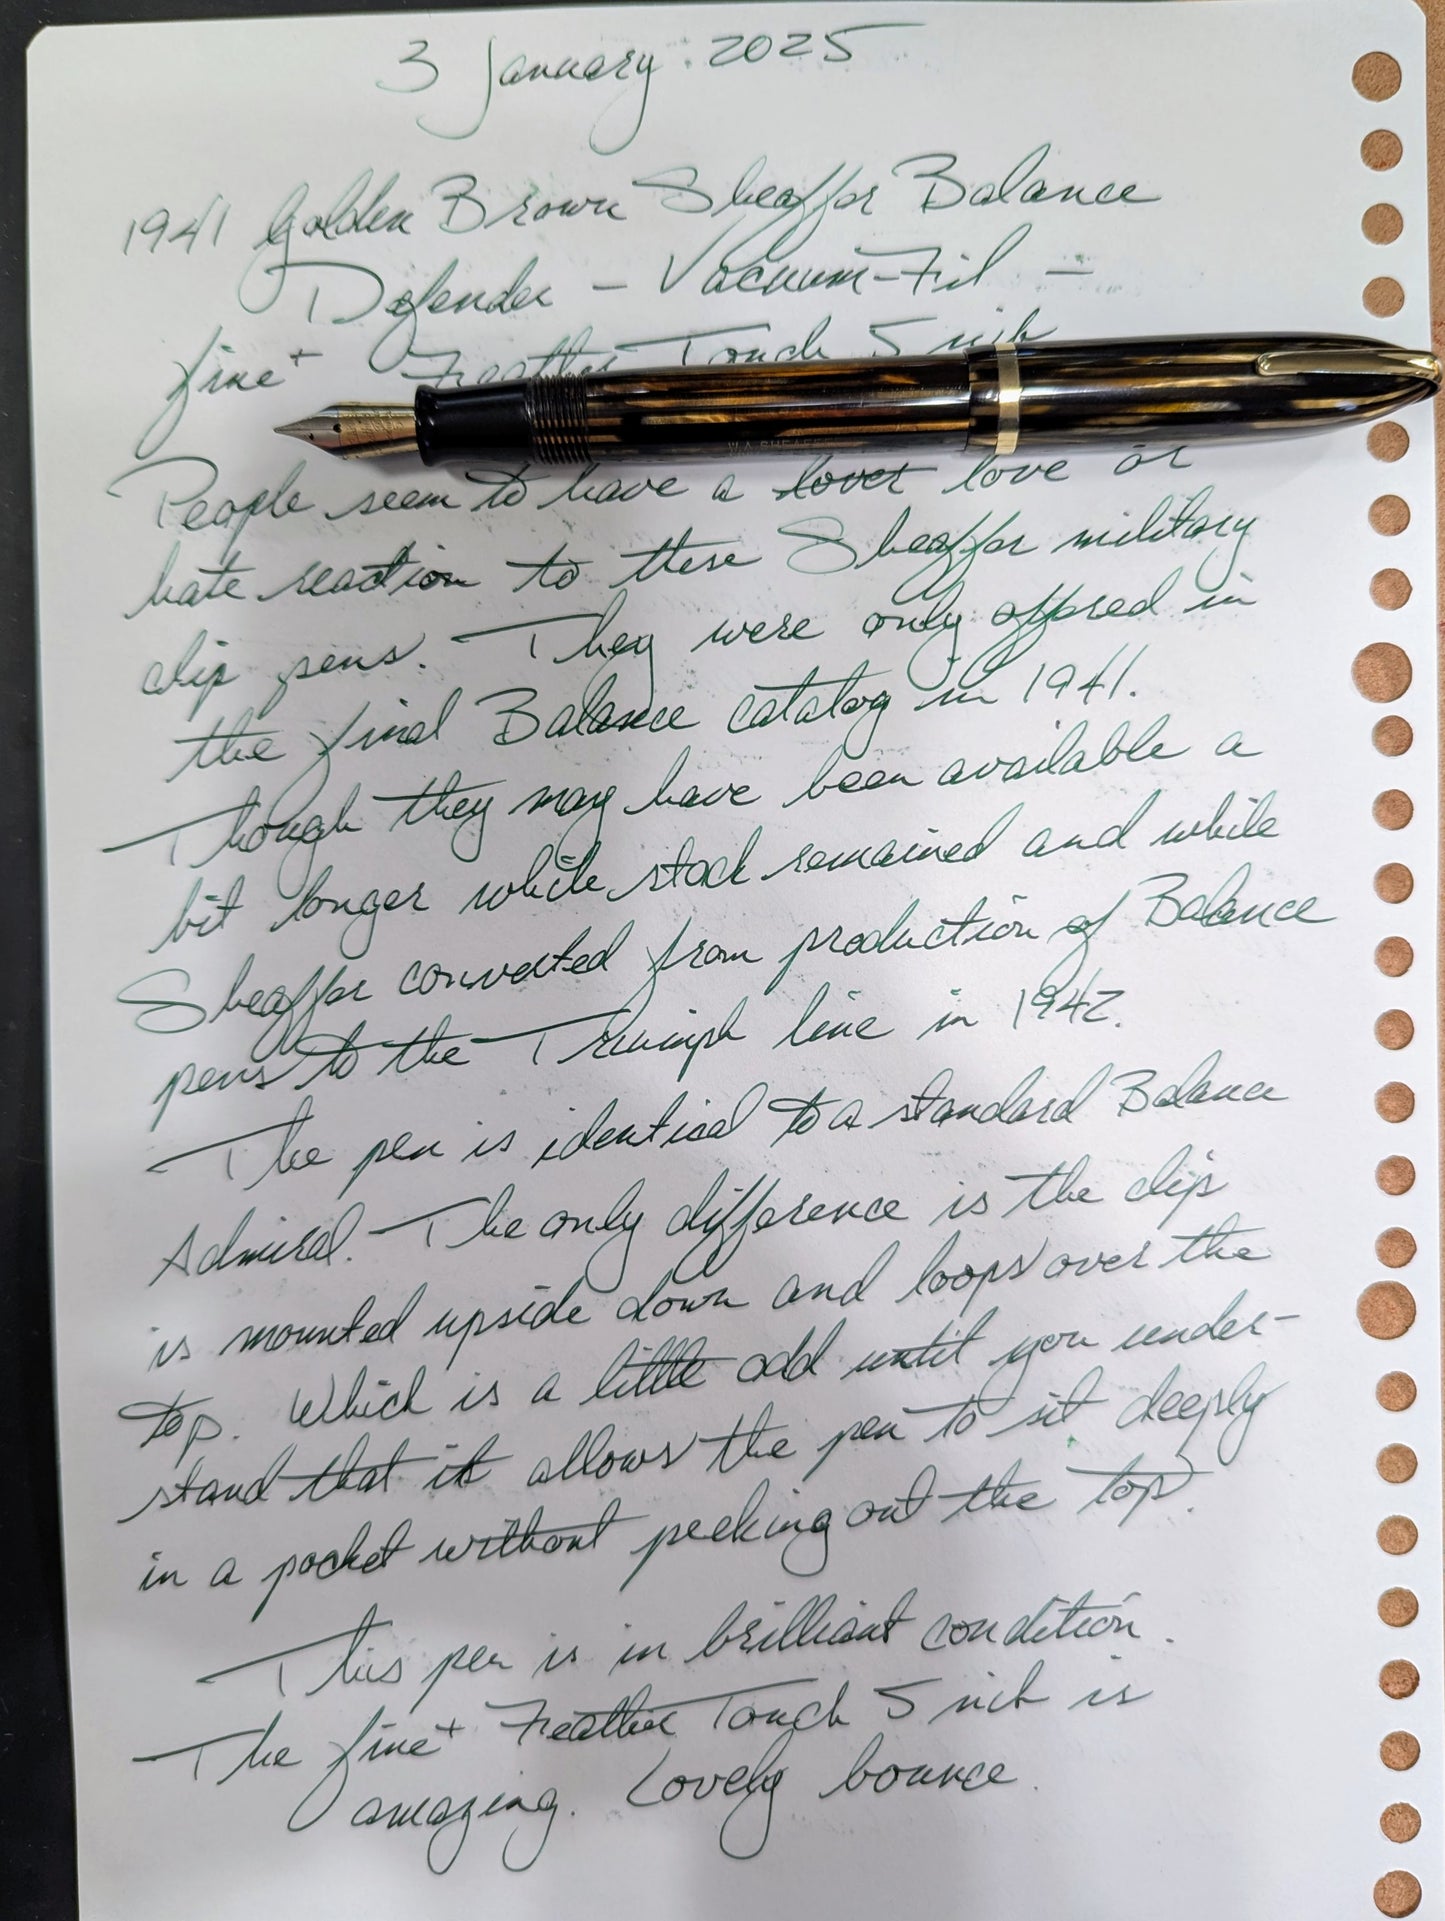 3 January 2025
1941 Golden Brown Sheaffer Balance
Defender - Vacuum-Fil -
fine+ Feather Touch 5 nib
W.A. SHEAFFER
People seem to have a lover love or
hate reaction to these Sheaffer military
clip pens. They were only offered in
the final Balance catalog in 1941.
Though they may have been available a
bit longer while stock remained and while
Sheaffer converted from production of Balance
pens to the Triumph line in 1942.
The pen is identical to a standard Balance
Admiral. The only difference is the clip
is mounted upside down and loops over the
top. Which is a little odd until you under-
stand that it allows the pen to sit deeply
in a pocket without peeking out the top.
This pen is in brilliant condition.
The fine+ Feather Touch 5 nib is
amazing. Lovely bounce.